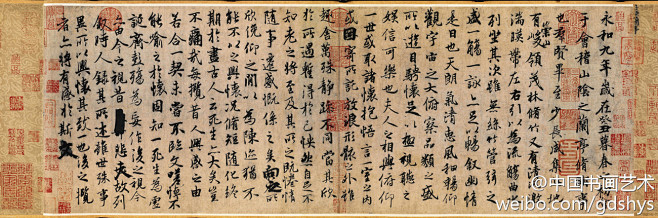 永和九年歲在癸丑暮春之初會
于會稽山陰之蘭亭脩稧事
也羣賢畢至少長咸集此地
有崇山峻領茂林脩竹又有清流激
湍暎帶左右引以為流觴曲水
列坐其次雖無絲竹管弦之
盛一觴一詠亦足以暢敘幽情
是日也天朗氣清惠風和暢仰
觀宇宙之大俯察品類之盛
所以遊目騁懷足以極視聽之
娛信可樂也夫人之相與俯仰
一世或取諸懷抱悟言一室之內
或因寄所託放浪形骸之外雖
趣舍萬殊靜躁不同當其欣
於所遇蹔得於己怏然自足不
知老之將至及其所之既惓情
隨事遷感慨係之矣向之所
欣俛仰之間以為陳迹猶不
能不以之興懷況脩短隨化終
期於盡古人云死生亦大矣豈
不痛哉每攬昔人興感之由
若合一契未嘗不臨文嗟悼不
能喻之於懷固知一死生為虛
誕齊彭殤為妄作後之視今
亦由今之視昔悲夫故列
敘時人錄其所述雖世殊事
異所以興懷其致一也後之攬
者亦將有感於斯文
@中国书画艺术
weibo.com/gdshys